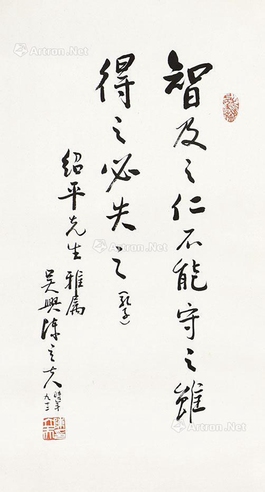 智及之仁不能守之雖
得之必失之（孔子）
紹平先生雅屬
吳興陳立夫時年九十三
Artron.Net
Artron.Net
Artron.Net
Artron.Net